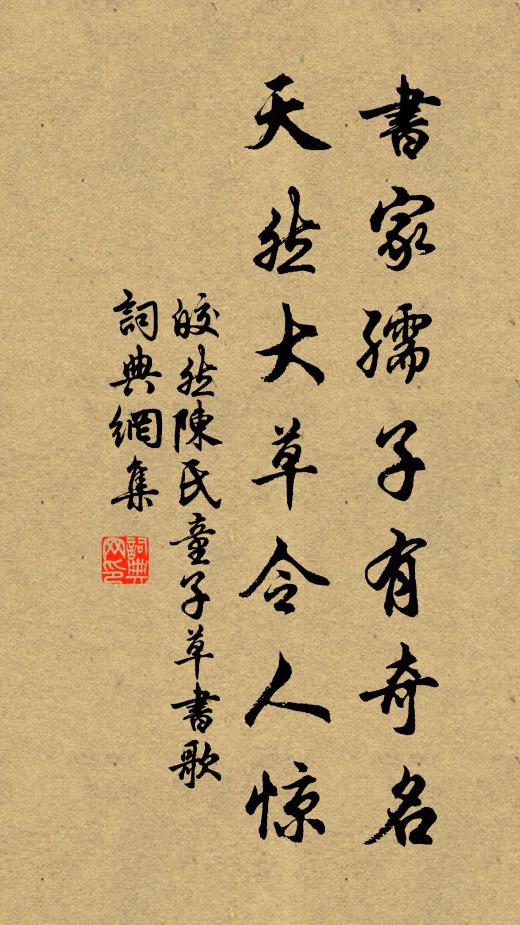 書家孺子有奇名
天然大草令人惊
皎然陳氏童子草書歌
詞典網集
詞典网印